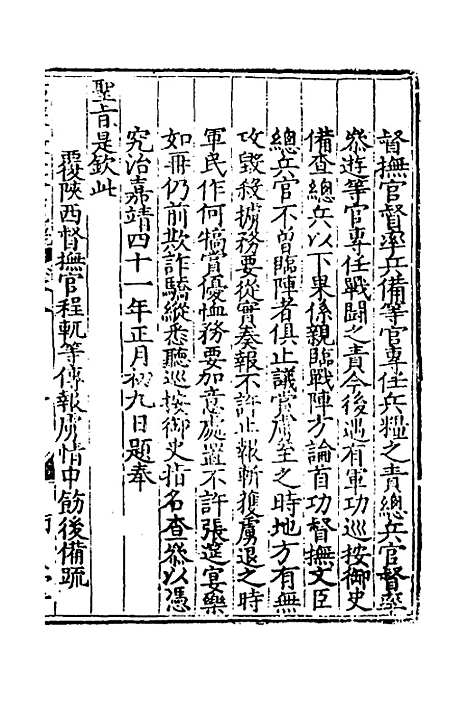 督撫官督率兵備等官專任兵糧之責總兵官督率
叅遊等官專任戰鬪之責今後遇有軍功巡按御史
備查總兵以下果係親臨戰陣方論首功督撫文臣
總兵官不曽臨陣者俱止議賞虜至之時地方有無
攻毀殺擄務要從實奏報不許止報斬獲虜退之時
軍民作何犒賞優恤務要加意處置不許張筵宴樂
如冊仍前欺詐驕縱悉聽巡按御史指名查叅以憑
究治嘉靖四十一年正月初九日題奉
聖旨是欽此
覆陝西督撫官程軏等傳報虜情申飭後備疏